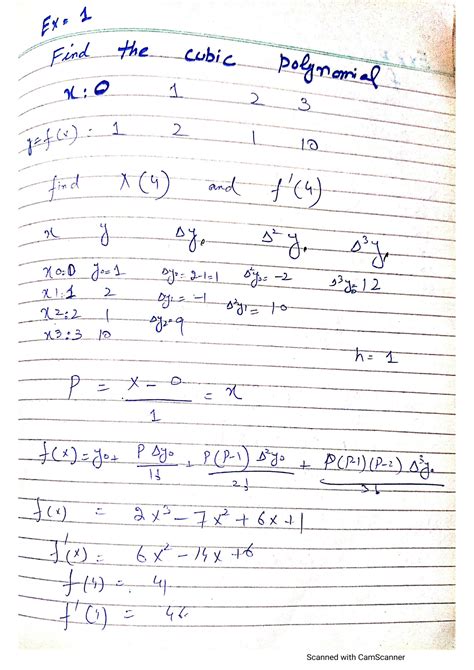 Ex = 1
Find the cubic polynomial
x : 0 1 2 3
y=f(x) : 1 2 1 10
find X(4) and f'(4)
x y Δy₀ Δ²y₀ Δ³y₀
x0:0 y₀=1 Δy₀= 2-1=1 Δ²y₀= -2 Δ³y₀= 12
x1:1 2 Δy₁= -1 Δ²y₁= 10
x2:2 1 Δy₂=9
x3:3 10
h= 1
P = X-0 / 1 = x
f(x)=y₀+ P Δy₀ / 1! + P(P-1) Δ²y₀ / 2! + P(P-1)(P-2) Δ³y₀ / 3!
f(x) = 2x³-7x²+6x+1
f'(x)= 6x²-14x+6
f(4) = 41
f'(4) = 46
Scanned with CamScanner